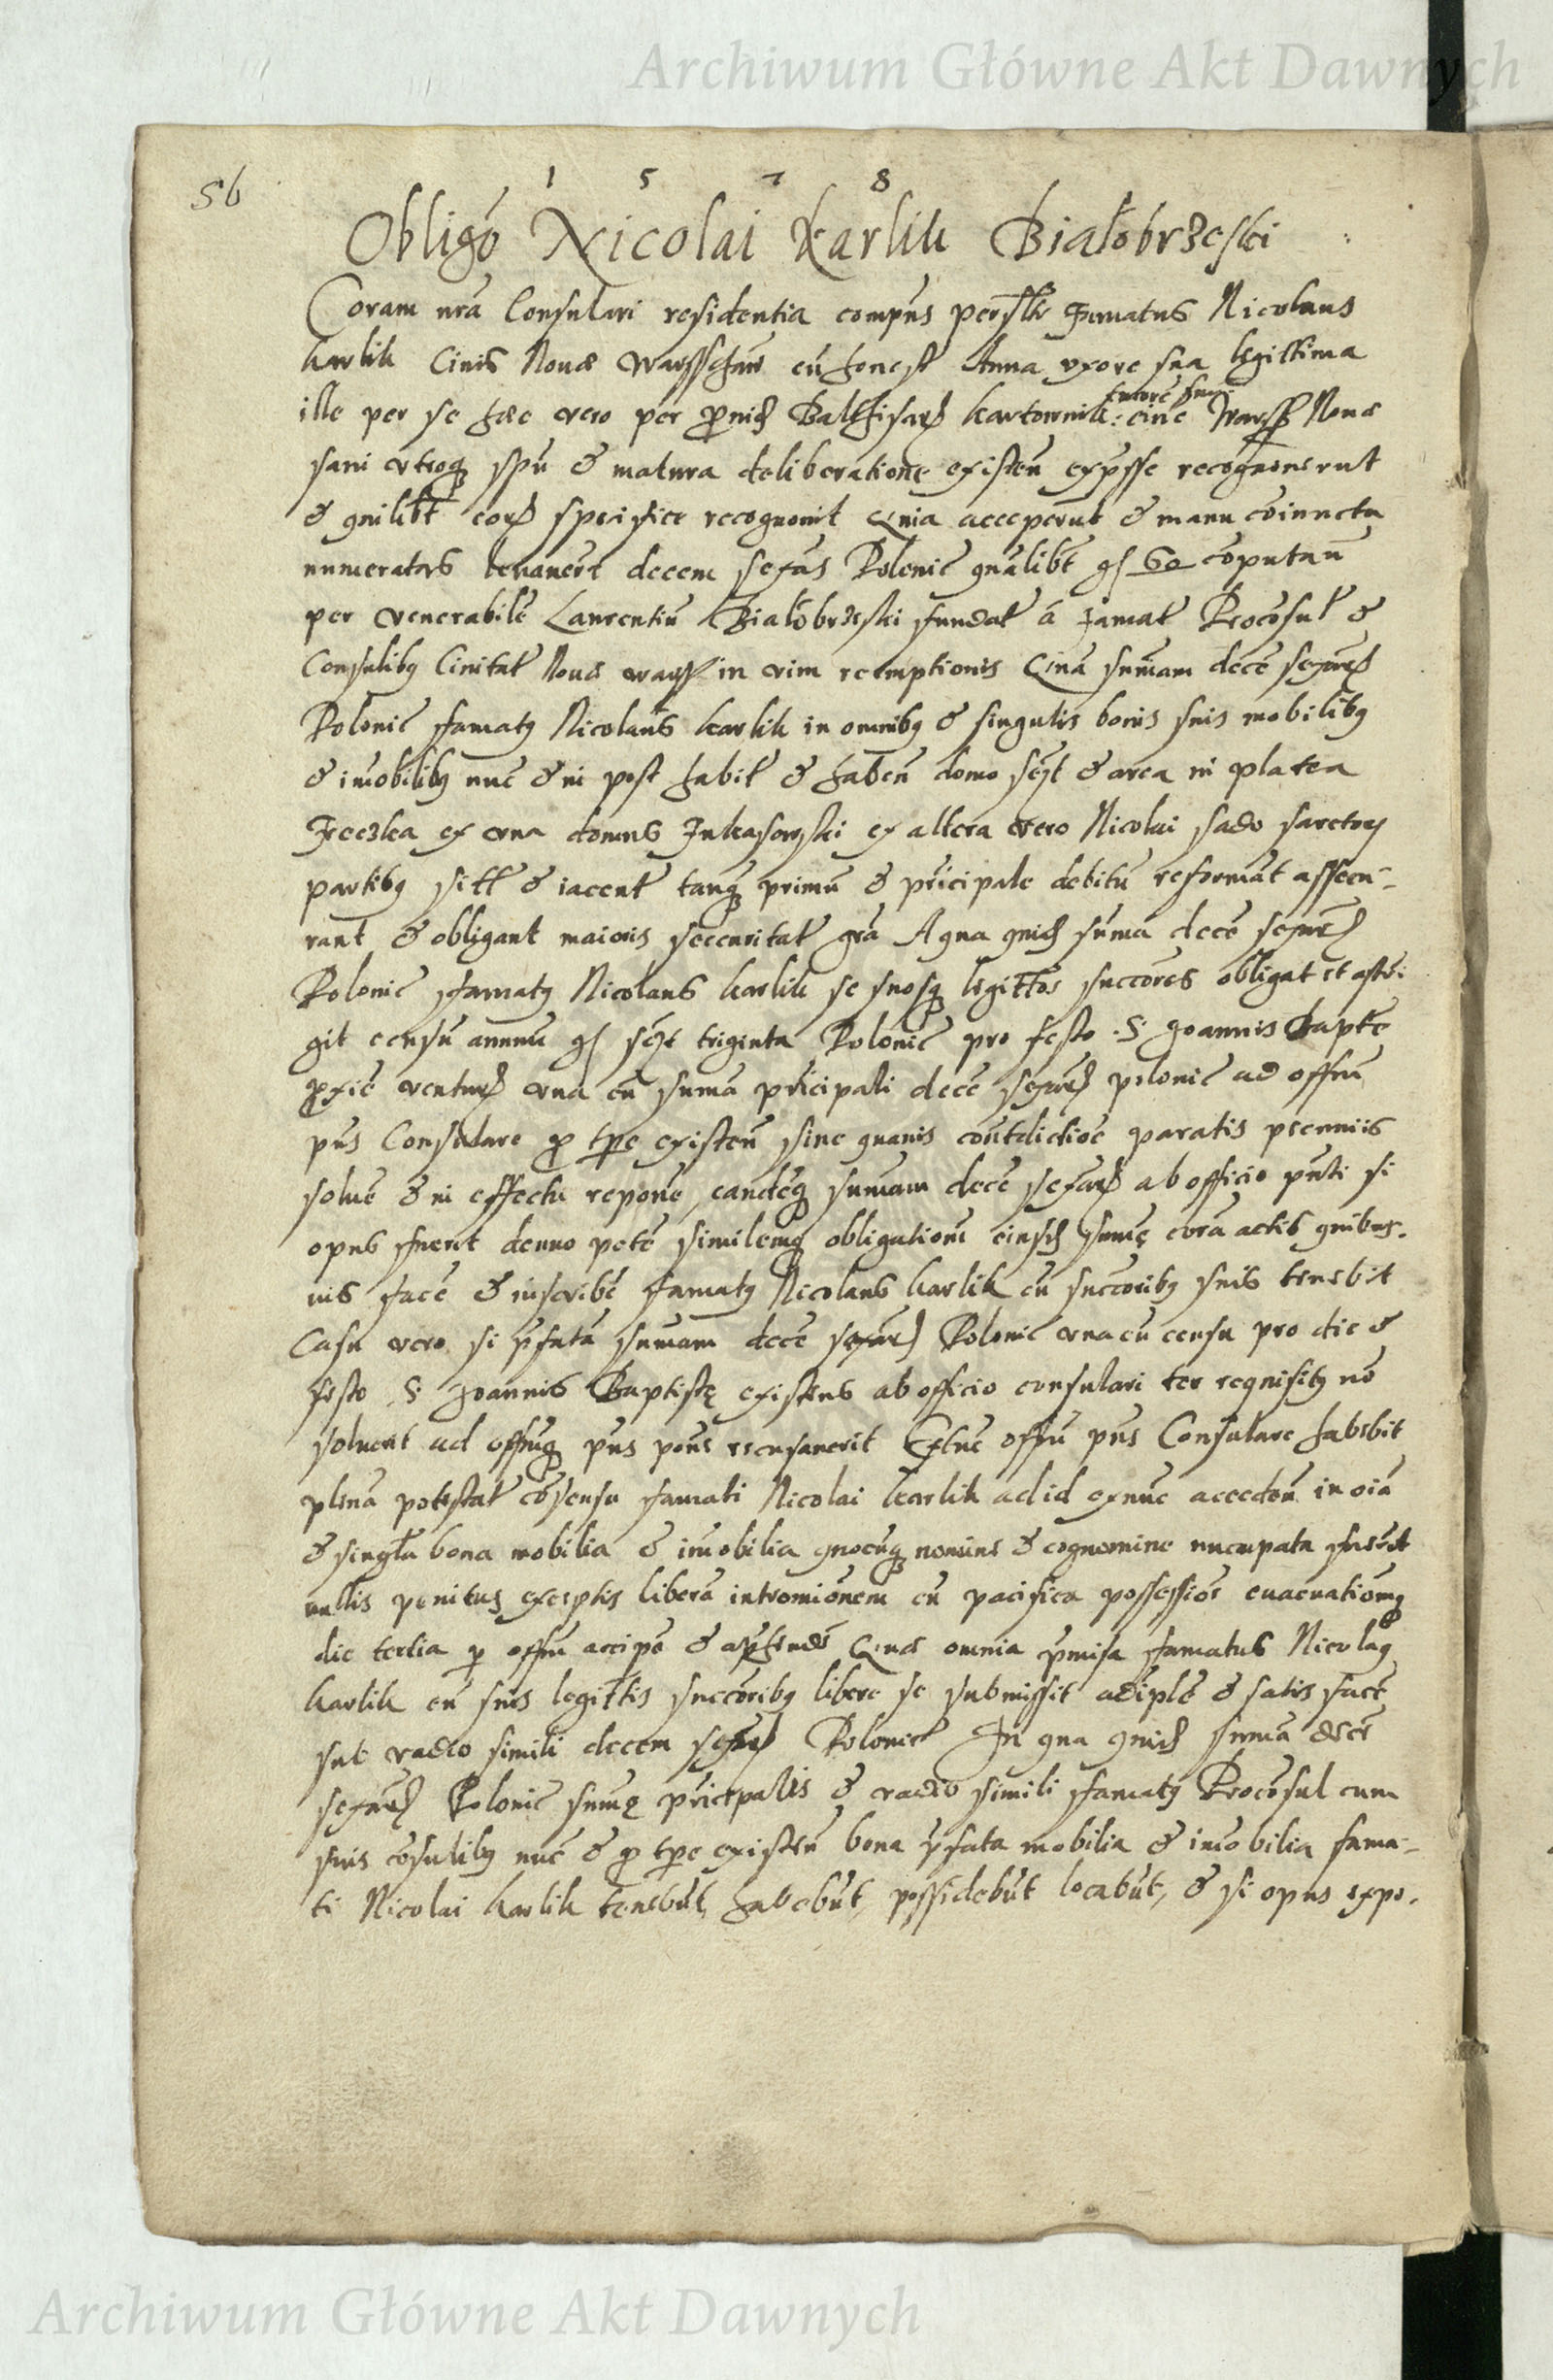 Archiwum Główne Akt Dawnych
56
1 5 7 8
Obligō Nicolai Karlik Białobrzeski
Coram nrā Consulari residentia compns Famatus Nicolaus
Karlik Civis Novæ cū honest Anna uxore sua legittima
tutore suū
ille per se hæc vero per Kartownik cive Warss Nova
sani utroq spū & matura deliberatione existen expsse recognoverūt
& quilibt eorū specifice recognovit Quia acceperūt & manu coniuncta
numeratas levavere decem sexas Polonic quālibt gs 60 cōputan
per venerabile Laurentiū Białobrzeski fundat á Famat Procōsul &
Consulibꝫ Civitat Nova Warss in vim reemptionis Quā summam decē sexarū
Polonic famatꝫ Nicolaus Karlik in omnibꝫ & singulis bonis suis mobilibꝫ
& imobilibꝫ nūc & in post habit & haben domo & area in platea
Freczka ex una domus ex altera vero Nicolai
partibꝫ sitt & iacent tanq primū & pricipale debitū reformāt assecu-
rant & obligant maioris securitat grā A qua quid suma decē sexarū
Polonic famatꝫ Nicolaus Karlik se suosq legittos succores obligat et astri-
git censū annuū gs triginta Polonic pro festo S. Joannis Bapte
pxie ventur una cū sumā pricipali decē sexarū polonic ad offm
pns Consulare p tpe existen sine quavis cōntdictioe paratis pecuniis
solvē & in effectu repone, eandēq sumam decē sexarū ab officio pnti si
opus fuerit denuo petē similemq obligationē eiusd sumę corā actis quibus-
vis facē & inscribē famatꝫ Nicolaus Karlik cū succoribꝫ suis tenebit
Casu vero si pfatā sumam decē sexarū Polonic una cū censu pro die &
festo S. Joannis Baptistę existens ab officio consulari ter requisitꝫ nō
solverit ad offmq pns recusaverit Extūc offm pns Consulare habebit
plenā potestat cōsensu famati Nicolai Karlik ad id exnūc acceden in oīa
& singla bona mobilia & imobilia quocūq nomine & cognomine nucupata
nullis penitus exceptis liberā intromiōnem cū pacifica possessiōe evacuationēq
die tertia p offm accipe & Quæ omnia pmisa famatus Nicolaꝫ
Karlik cū suis legittis succoribꝫ libere se submissit adīplē & satis facē
sub vadio simili decem sexarū Polonic In qua quid sumā decē
sexarū Polonic sumę pricipalis & vadio simili famatꝫ Procōsul cum
suis cōsulibꝫ nūc & p tpe existen bona pfata mobilia & imobilia fama-
ti Nicolai Karlik tenebūt, habebūt, possidebūt locabūt, & si opus expo-
Archiwum Główne Akt Dawnych